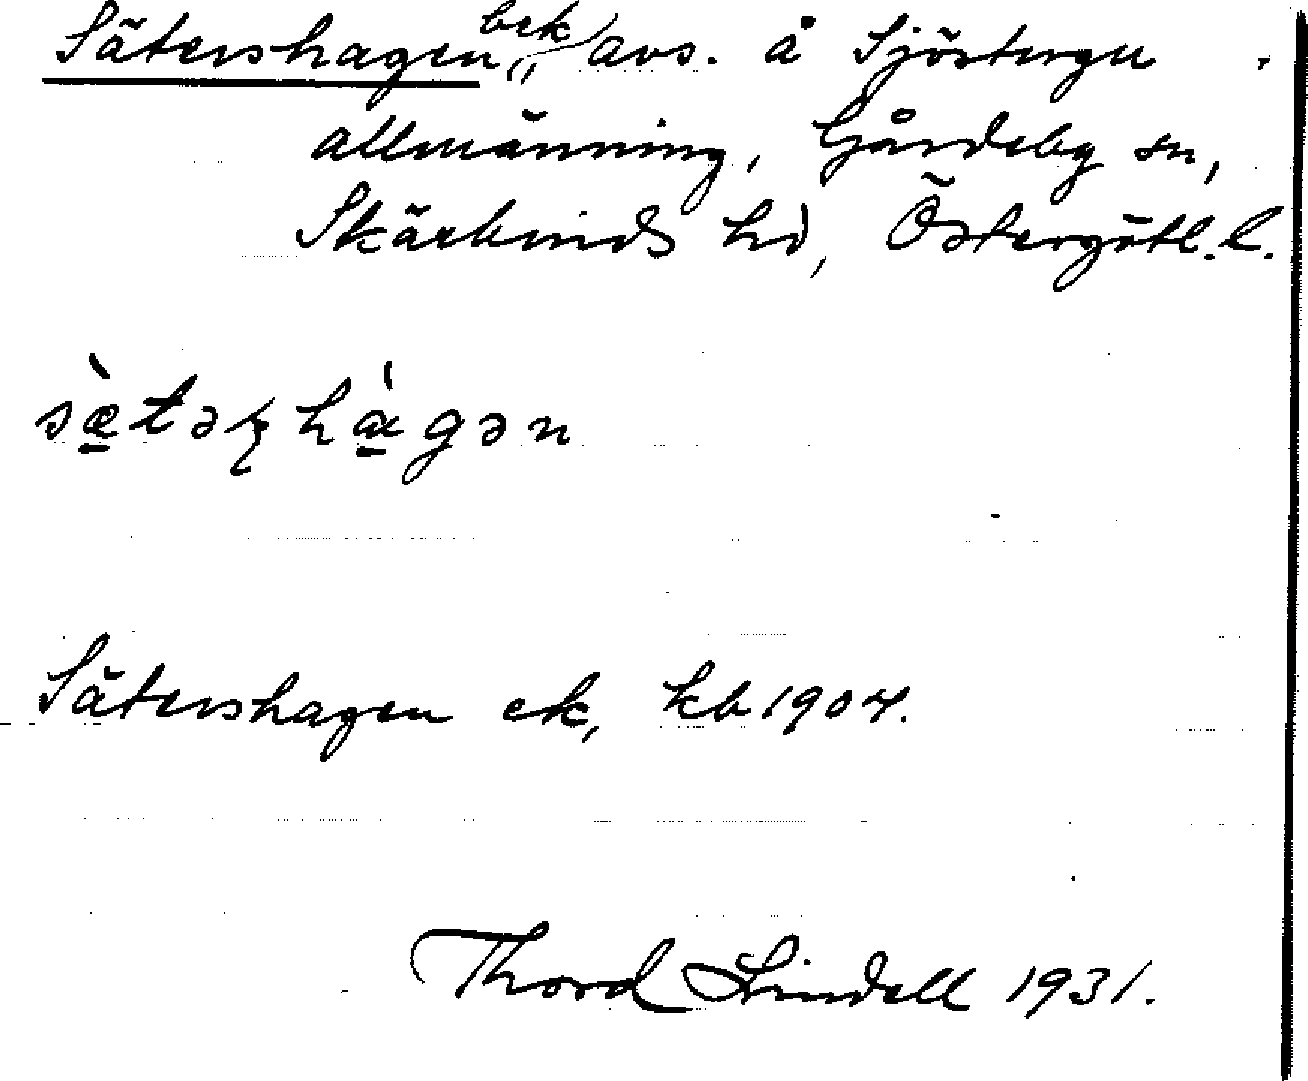 Sätershagen, bek avs. å Sjöstergu
allmänning, Gårdeby sn,
Skärkinds hd, Östergötl. l.
sæ̀təʂhɑ̀gən
Sätershagen ek, kb 1904.
Thord Lindell 1931.